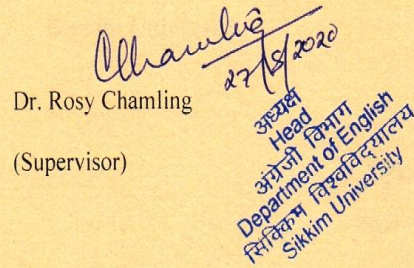 Chamling
27/8/2020
Dr. Rosy Chamling
(Supervisor)
अध्यक्ष
Head
अंग्रेजी विभाग
Department of English
सिक्किम विश्वविद्यालय
Sikkim University